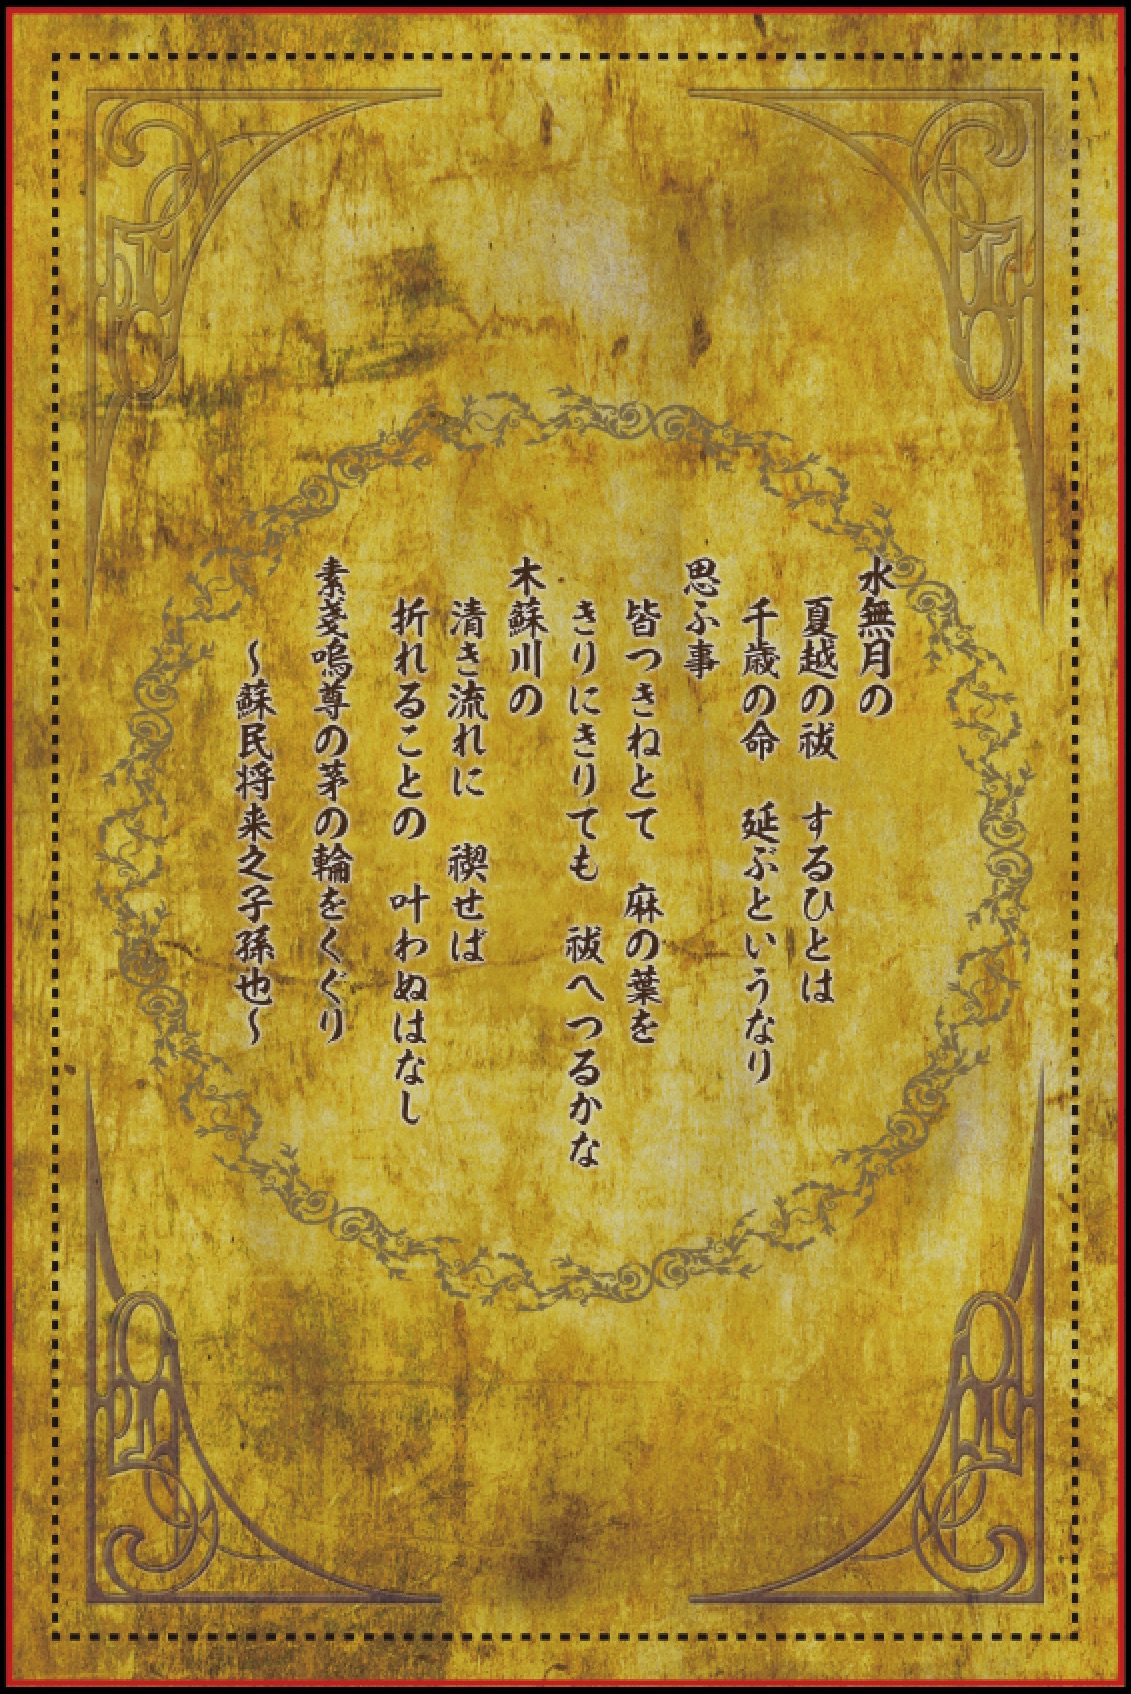 水無月の
夏越の祓　するひとは
千歳の命　延ぶというなり
思ふ事
皆つきねとて　麻の葉を
きりにきりても　祓へつるかな
木蘇川の
清き流れに　禊せば
折れることの　叶わぬはなし
素戔嗚尊の茅の輪をくぐり
～蘇民将来之子孫也～